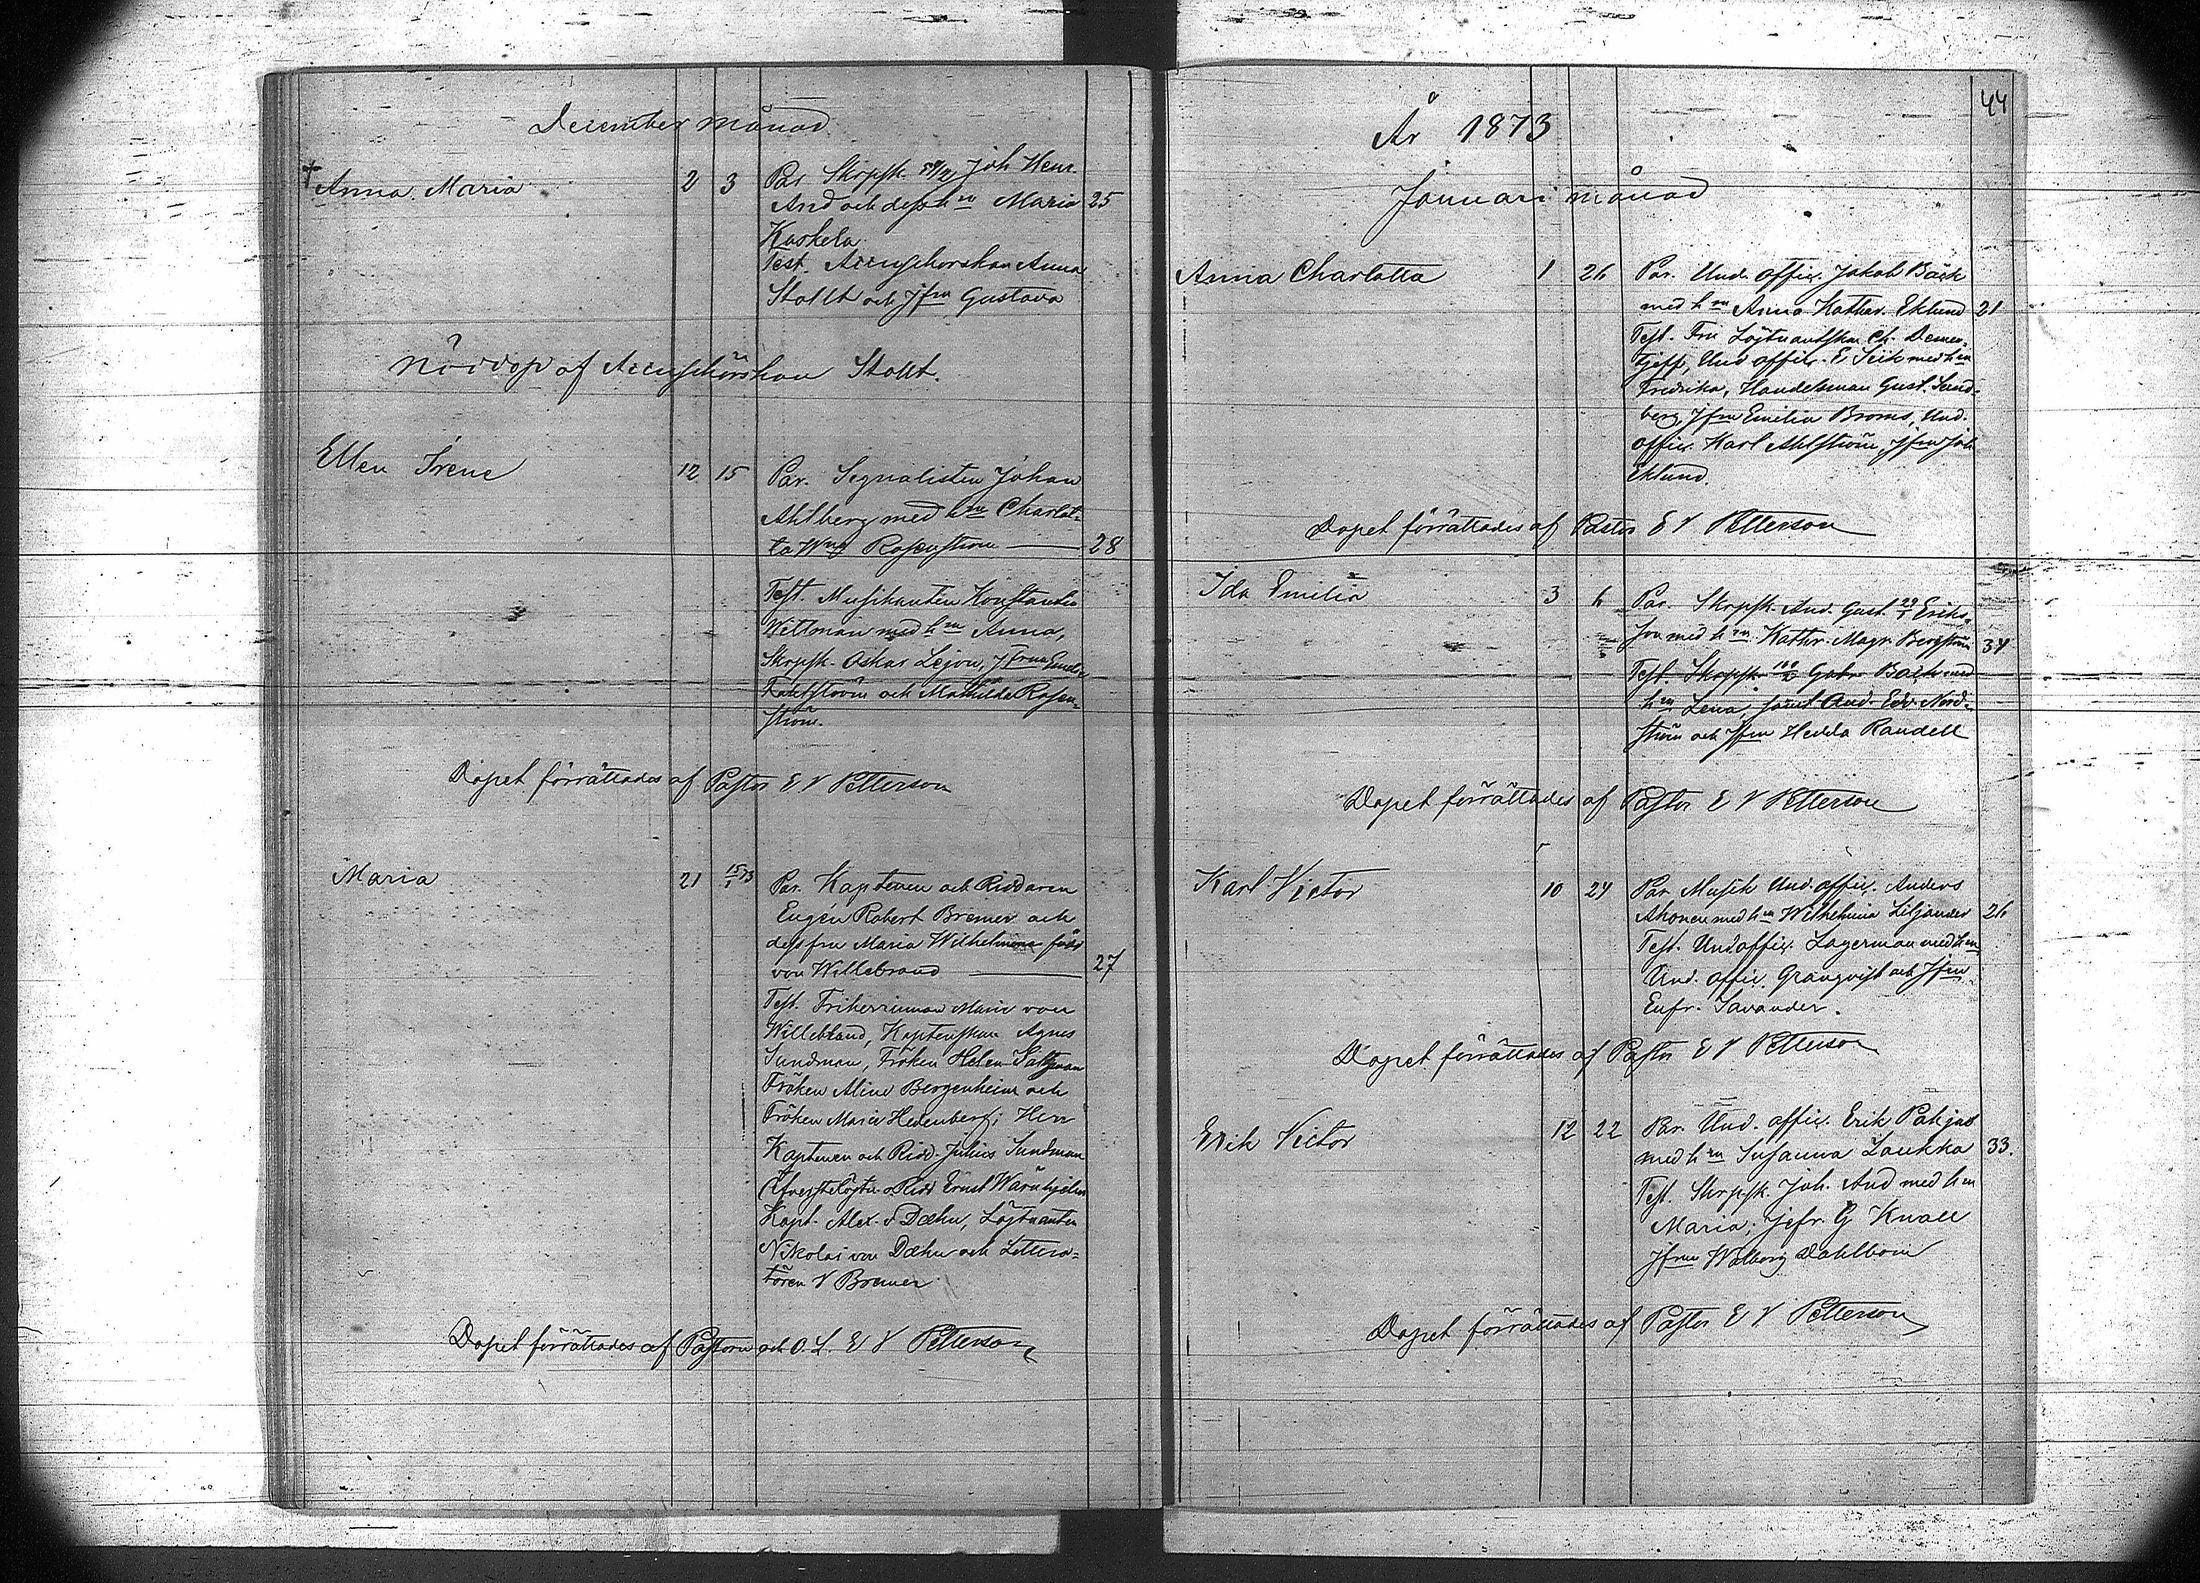 December månad
† Anna Maria 2 3 Par. Skrpsk. Joh Henr.
And och dess hu Maria 25
Kaskela.
Test. Accuschörskan Anna
Stollt och Jfru Gustava
Nöddop af Accuschörskan Stollt.
Ellen Irene 12 15 Par. Signalisten Johan
Ahlberg med hu Charlot-
ta Rosenström 28
Test. Musikanten Konstantin
Wettman med hu Anna,
Skrpsk. Oskar Lejon, Jfrun
och Mathilda Rosen-
ström.
Dopet förrättades af Pastor E V Petterson
Maria 21 15/1 73 Par. Kaptenen och Riddaren
Eugén Robert Bremer och
dess fru Maria Wilhelmina född
von Willebrand 27
Test. Friherrinnan Maria von
Willebrand, Kaptenskan Agnes
Sundman, Fröken Helen
Fröken Aline Bergenheim och
Fröken Maria Hedenberg; Herr
Kaptenen och Ridd. Julius Sundman
Öfverstelöjtn. o Ridd Ernst Wärnhjelm
Kapt. Alex. v Dæhn, Löjtnanten
Nikolai von Dæhn och Littera-
tören V Bremer.
Dopet förrättades af Pastorn och O. L. E V Petterson
44
År 1873
Januari månad
Anna Charlotta 1 26 Par. Und. offic. Jakob Bäck
med hu Anna Kathar. Eklund 21
Test. Fru Löjtnantskan Ch. Demen-
tjeff, Und offic. E. med hu
Fredrika, Handelsman Gust. Sand-
berg, Jfru Emilia Broms, Und.
offic. Karl Ahlström, Jfru Joh
Eklund.
Dopet förrättades af Pastor E V Petterson
Ida Emilia 3 6 Par. Skrpsk. And. Gust. 29/1 Eriks-
son med hu Kathr. Magr. Bergström 34
Test. Skrpsk. Gabr. Bäck med
hu Lena, samt And. Edv. Nord-
ström och Jfru Hedda Randell
Dopet förrättades af Pastor E V Petterson
Karl Victor 10 24 Par Musik Und. offic. Anders
Ahonen med hu Wilhelmina Liljander 26
Test. Und offic. Lagerman med hu
Und. offic Granqvist och Jfru
Eufr. Savander.
Dopet förrättades af Pastor E V Petterson
Erik Victor 12 22 Par. Und. offic. Erik
med hu Susanna Laukka 33.
Test. Skrpsk. Joh. And med hu
Maria; jefr. G Knall
Jfru Walborg Dahlbom
Dopet förrättades af Pastor E V Petterson